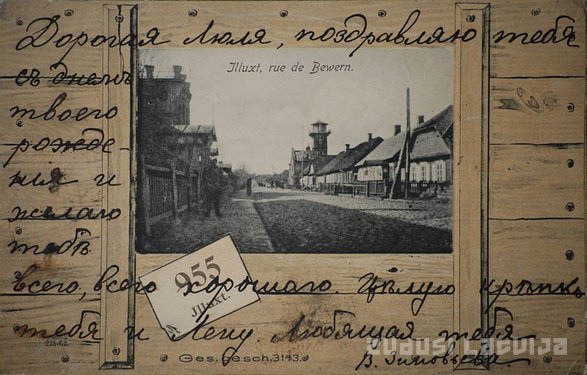 Дорогая Люля, поздравляю тебя
съ днемъ
твоего
рожде-
нія и
желаю
тебѣ
всего, всего хорошаго. Цѣлую крѣпко
тебя и Лену Любящая тебя
В. Зиновьева.
Illuxt, rue de Bewern.
955
Illuxt.
Ges. gesch. 3143.
ZUDUSI LATVIJA